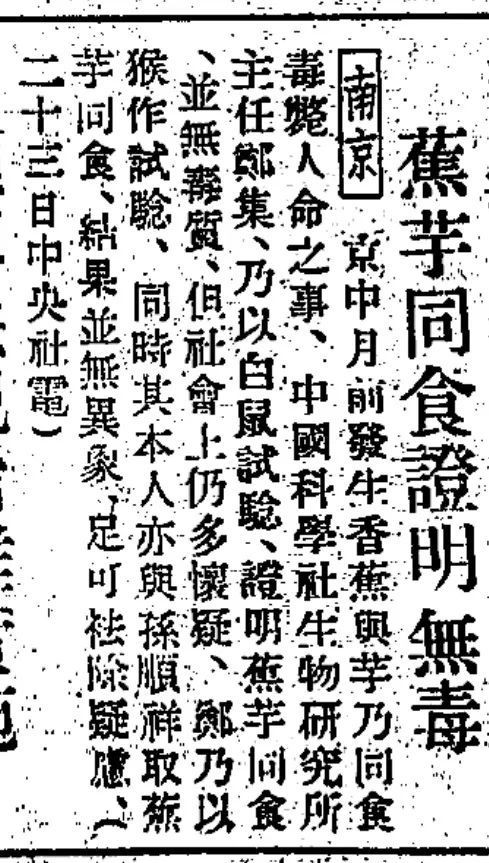 蕉芋同食證明無毒
南京 京中月前發生香蕉與芋乃同食
毒斃人命之事、中國科學社生物研究所
主任鄭集、乃以白鼠試驗、證明蕉芋同食
、並無毒質、但社會上仍多懷疑、鄭乃以
猴作試驗、同時其本人亦與孫順祥取蕉
芋同食、結果並無異象、足可祛除疑慮、（
二十三日中央社電）